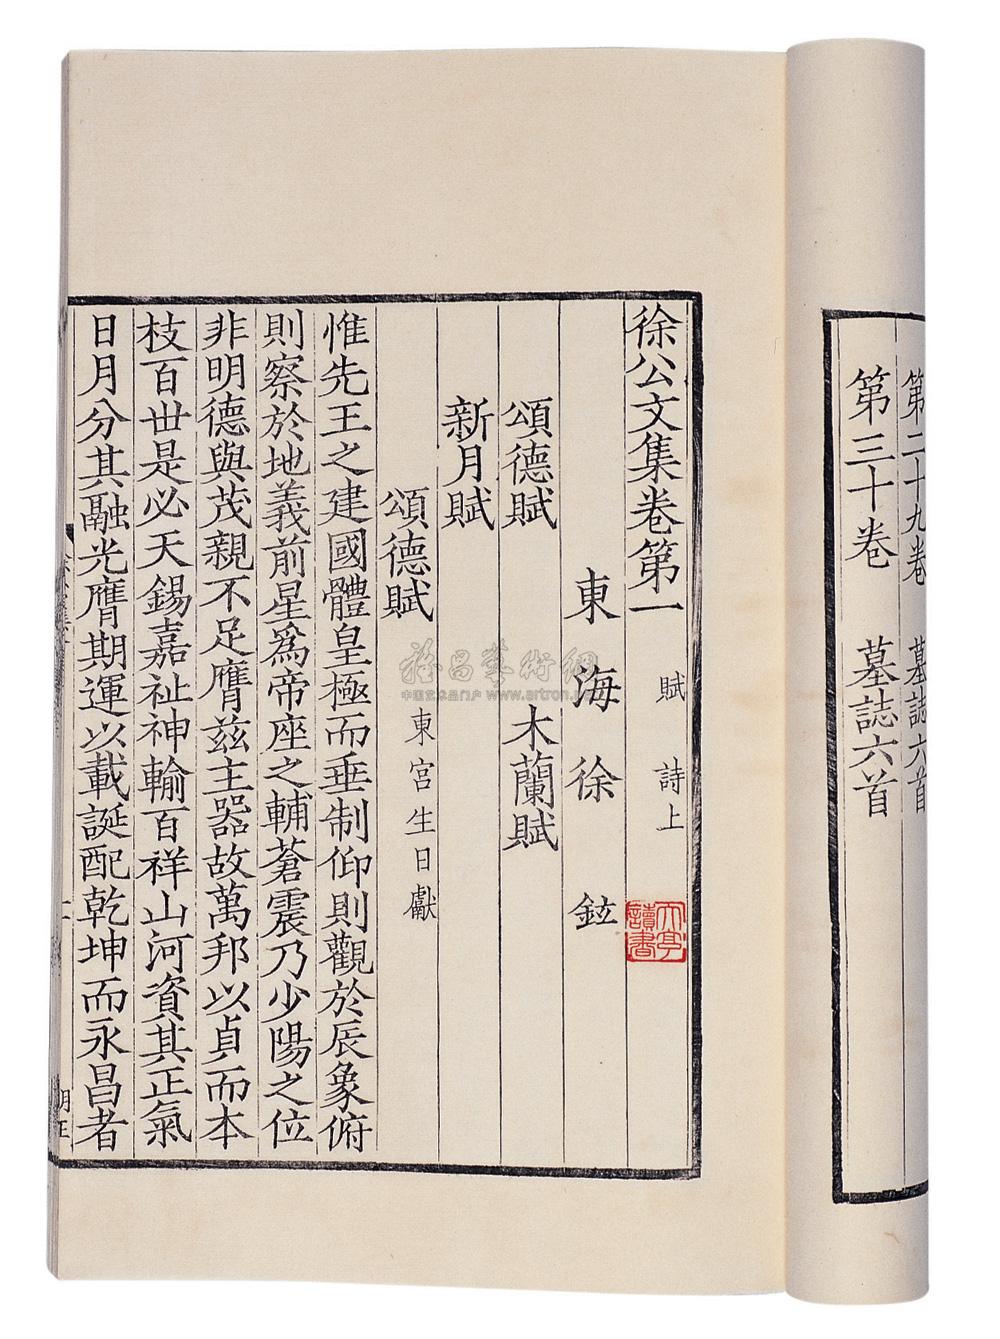 第二十九卷 墓誌六首
第三十卷 墓誌六首
徐公文集卷第一 賦 詩上
東海徐鉉
頌德賦 木蘭賦
新月賦
頌德賦 東宮生日獻
惟先王之建國體皇極而垂制仰則觀於辰象俯
則察於地義前星爲帝座之輔蒼震乃少陽之位
非明德與茂親不足膺茲主器故萬邦以貞而本
枝百世是必天錫嘉祉神輸百祥山河資其正氣
日月分其融光膺期運以載誕配乾坤而永昌者
讀書
中国艺术品门户 www.artron.net